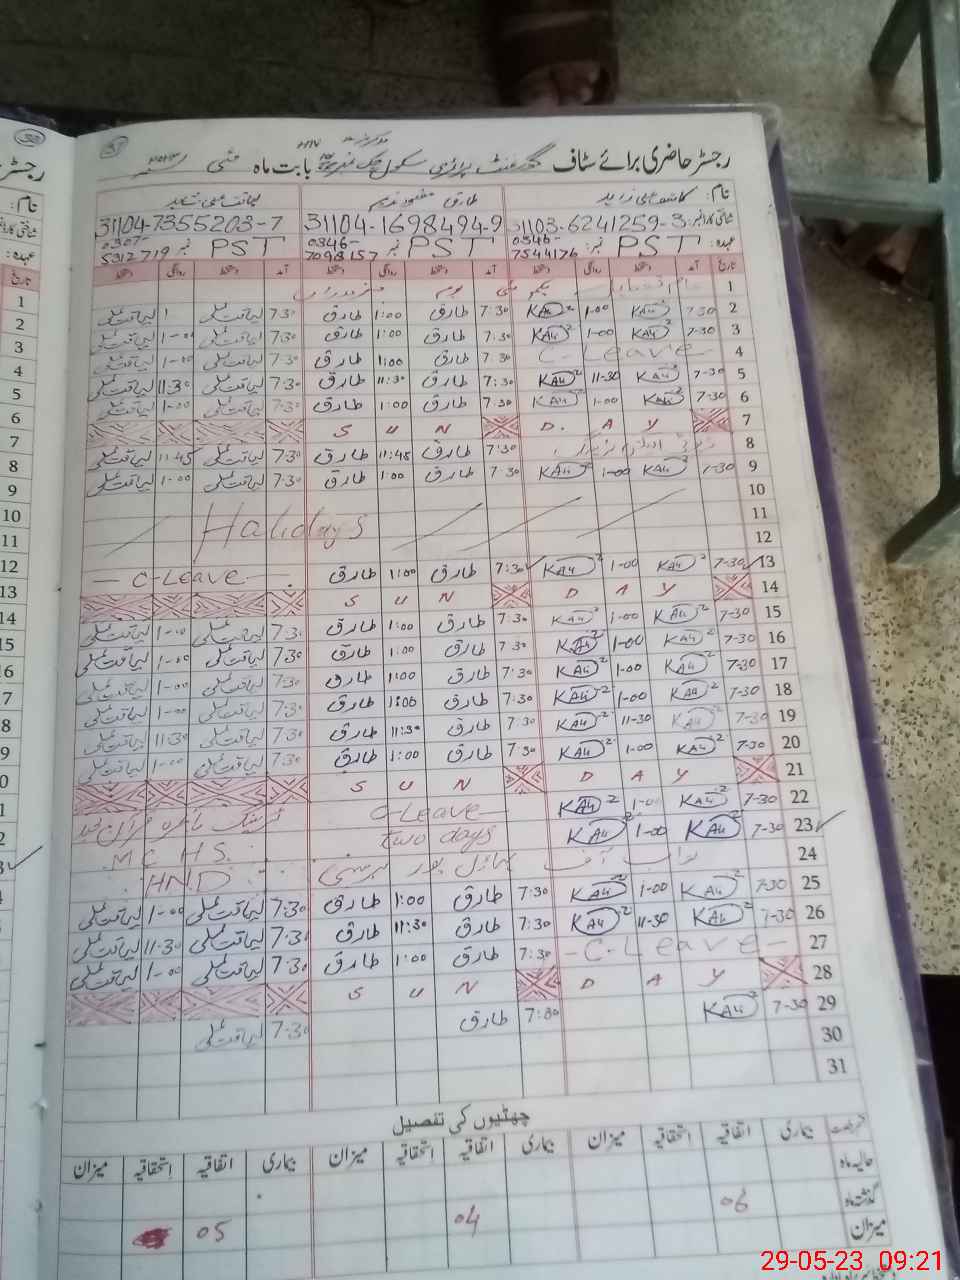 رجسٹر حاضری برائے سٹاف گورنمنٹ پرائمری سکول چک نمبر بابت ماہ مئی
نام: کاشف علی زاہد طارق مقصود ندیم لیاقت علی شاہد
شناختی کارڈ نمبر 31103-6241259-3 31104-1698494-9 31104-7355203-7
عہدہ: PST نمبر: 0346-7544176 PST نمبر 0346-7098157 PST نمبر 0307-5312719
تاریخ آمد دستخط روانگی دستخط آمد دستخط روانگی دستخط آمد دستخط روانگی دستخط
1 عام تعطیل یکم مئی یوم مزدوراں
2 7-30 KAli 1-00 KAli 7:30 طارق 1:00 طارق 7:30 لیاقت علی 1 لیاقت علی
3 7-30 KAli 1-00 KAli 7:30 طارق 1:00 طارق 7:30 لیاقت علی 1-00 لیاقت علی
4 C-Leave 7:30 طارق 1:00 طارق 7:30 لیاقت علی 1-00 لیاقت علی
5 7-30 KAli 11-30 KAli 7:30 طارق 11:30 طارق 7:30 لیاقت علی 11:30 لیاقت علی
6 7-30 KAli 1-00 KAli 7:30 طارق 1:00 طارق 7:30 لیاقت علی 1-00 لیاقت علی
7 S U N D. A Y
8 7:30 طارق 11:45 طارق 7:30 لیاقت علی 11:45 لیاقت علی
9 7-30 KAli 1-00 KAli 7:30 طارق 1:00 طارق 7:30 لیاقت علی 1-00 لیاقت علی
10
11 Holidays
12
13 7-30 KAli 1-00 KAli 7:30 طارق 1:00 طارق C-Leave
14 S U N D A Y
15 7-30 KAli 1-00 KAli 7:30 طارق 1:00 طارق 7:30 لیاقت علی 1-00 لیاقت علی
16 7-30 KAli 1-00 KAli 7:30 طارق 1:00 طارق 7:30 لیاقت علی 1-00 لیاقت علی
17 7-30 KAli 1-00 KAli 7:30 طارق 1:00 طارق 7:30 لیاقت علی 1-00 لیاقت علی
18 7-30 KAli 1-00 KAli 7:30 طارق 1:00 طارق 7:30 لیاقت علی 1-00 لیاقت علی
19 7-30 KAli 11-30 KAli 7:30 طارق 11:30 طارق 7:30 لیاقت علی 11:30 لیاقت علی
20 7-30 KAli 1-00 KAli 7:30 طارق 1:00 طارق 7:30 لیاقت علی 1-00 لیاقت علی
21 S U N D A Y
22 7-30 KAli 1-00 KAli C-Leave
23 7-30 KAli 1-00 KAli two days M.C H.S.
24 نواب آف بہاول پور برسی HND
25 7-30 KAli 1-00 KAli 7:30 طارق 1:00 طارق 7:30 لیاقت علی 1-00 لیاقت علی
26 7-30 KAli 11-30 KAli 7:30 طارق 11:30 طارق 7:30 لیاقت علی 11:30 لیاقت علی
27 -C-Leave- 7:30 طارق 1:00 طارق 7:30 لیاقت علی 1-00 لیاقت علی
28 S U N D A Y
29 7-30 KAli 7:30 طارق 7:30 لیاقت علی
30
31
چھٹیوں کی تفصیل
بیماری اتفاقیہ استحقاقیہ میزان بیماری اتفاقیہ استحقاقیہ میزان بیماری اتفاقیہ استحقاقیہ میزان
حالیہ ماہ
گذشتہ ماہ 06 04 05
میزان
29-05-23 09:21